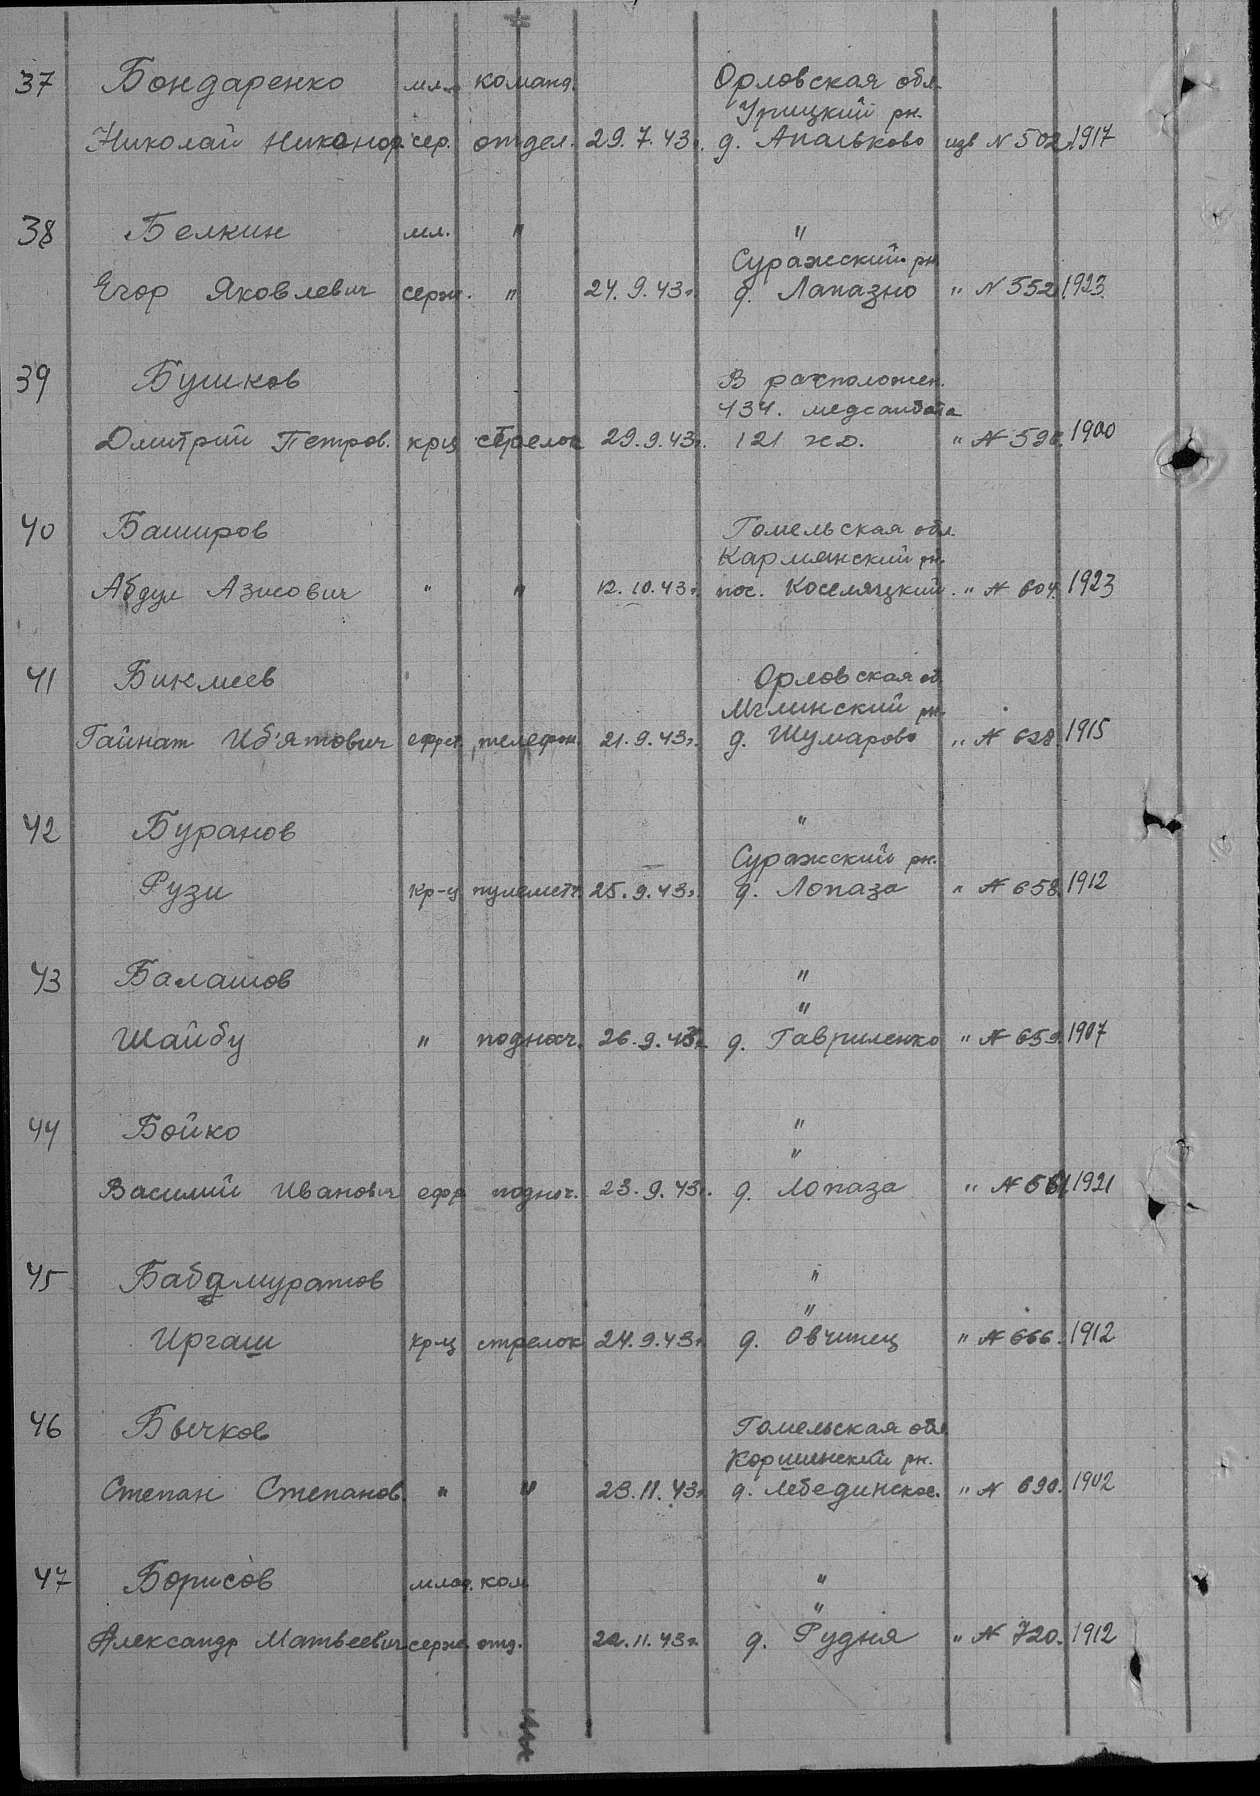 37 Бондаренко мл. команд. Орловская обл.
Урицкий рн.
Николай Никонор. сер. отдел. 29.7.43г. д. Апальково изв N 502. 1917
38 Белкин мл. " "
Суражский рн
Егор Яковлевич серж. " 24.9.43г. д. Лапазно " N 552 1923
39 Бушков В расположен.
134. медсанбата
Дмитрий Петров. крц стрелок 29.9.43г. 121 " N 590. 1900
40 Баширов Гомельская обл.
Кармянский рн.
Абдул Азисович " " 12.10.43г. пос. Коселяцкий. " N 604. 1923
41 Биклиев Орловская об.
Мглинский рн.
Гайнат Иб'ятович ефрет. телефон. 21.9.43г. д. Шумарово " N 628. 1915
42 Буранов "
Суражский рн.
Рузи Кр-ц пулеметч. 25.9.43г. д. Лопаза " N 658. 1912
43 Балашов "
"
Шайбу " поднос. 26.9.43г. д. Гавриленко " N 659. 1907
44 Бойко "
"
Василий Иванович ефр поднос. 23.9.43г. д. Лопаза " N 661. 1921
45 Бабдмуратов "
"
Иргаш кр-ц стрелок 24.9.43г. д. Овчинец " N 666. 1912
46 Бычков Гомельская обл.
Кормянский рн.
Степан Степанов. " " 23.11.43г. д. Лебединское. " N 690. 1902
47 Борисов млад. ком "
"
Александр Матвеевич серж. отд. 22.11.43г. д. Рудня " N 720. 1912